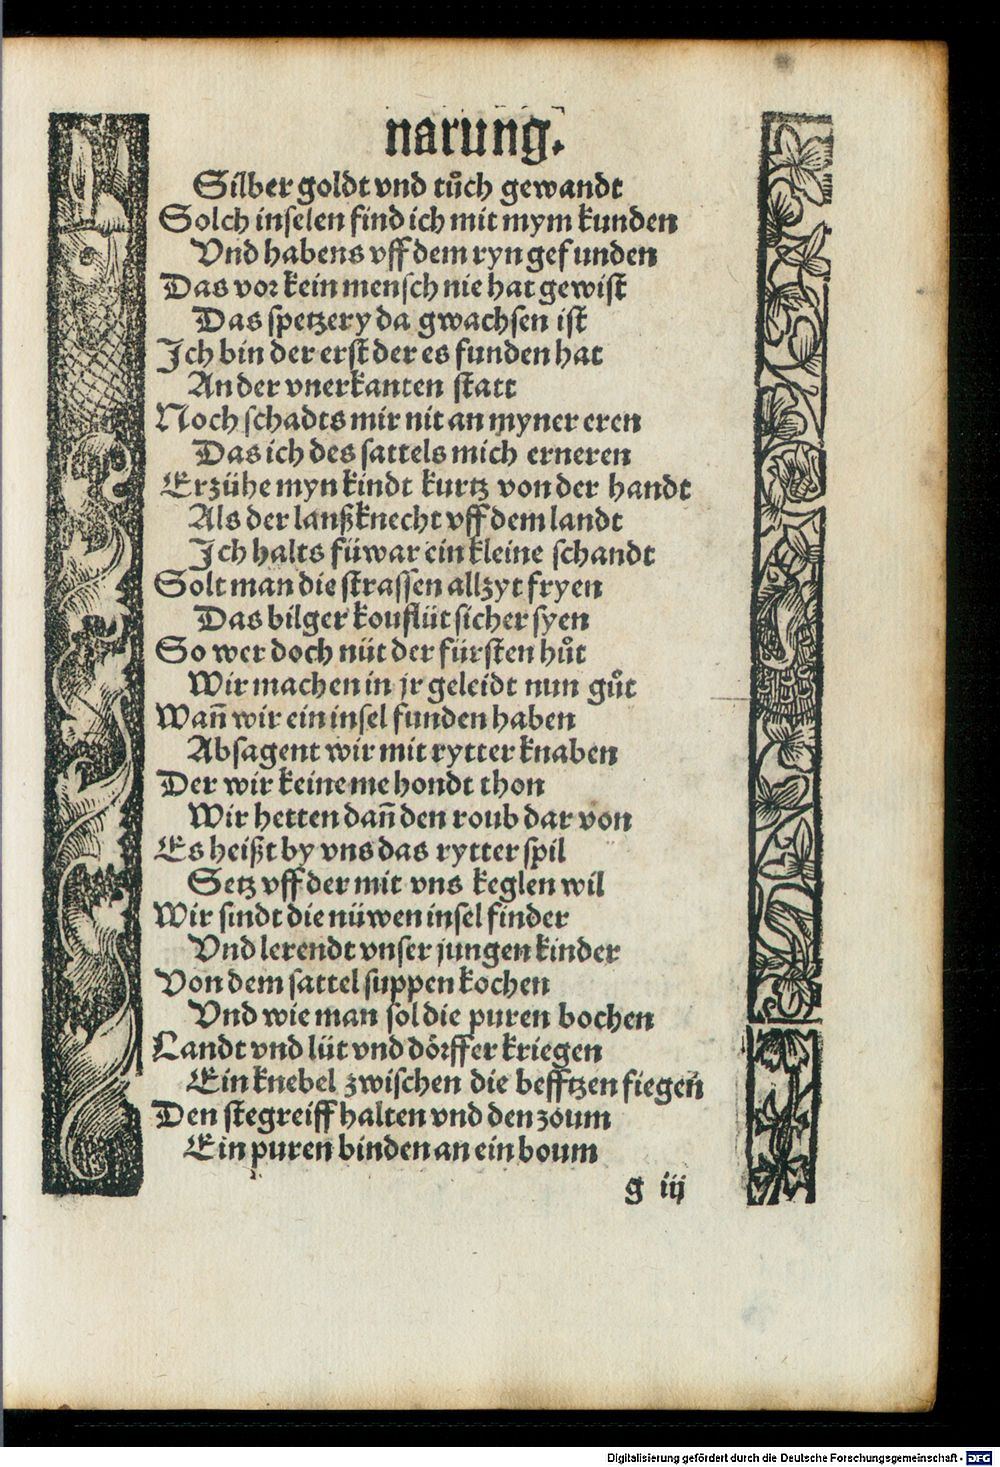 narung.
Silber goldt vnd tůch gewandt
Solch inselen find ich mit mym kunden
Vnd habens vff dem ryn gefunden
Das vor kein mensch nie hat gewist
Das spetzery da gwachsen ist
Ich bin der erst der es funden hat
An der vnerkanten statt
Noch schadts mir nit an myner eren
Das ich des sattels mich erneren
Erzühe myn kindt kurtz von der handt
Als der lanßknecht vff dem landt
Ich halts füwar ein kleine schandt
Solt man die strassen allzyt fryen
Das bilger kouflüt sicher syen
So wer doch nüt der fürsten hůt
Wir machen in jr geleidt nun gůt
Wañ wir ein insel funden haben
Absagent wir mit rytter knaben
Der wir keine me hondt thon
Wir hetten dañ den roub dar von
Es heißt by vns das rytter spil
Setz vff der mit vns keglen wil
Wir sindt die nüwen insel finder
Vnd lerendt vnser jungen kinder
Von dem sattel suppen kochen
Vnd wie man sol die puren bochen
Landt vnd lüt vnd dörffer kriegen
Ein knebel zwischen die befftzen fiegen
Den stegreiff halten vnd den zoum
Ein puren binden an ein boum
g iij
Digitalisierung gefördert durch die Deutsche Forschungsgemeinschaft - DFG